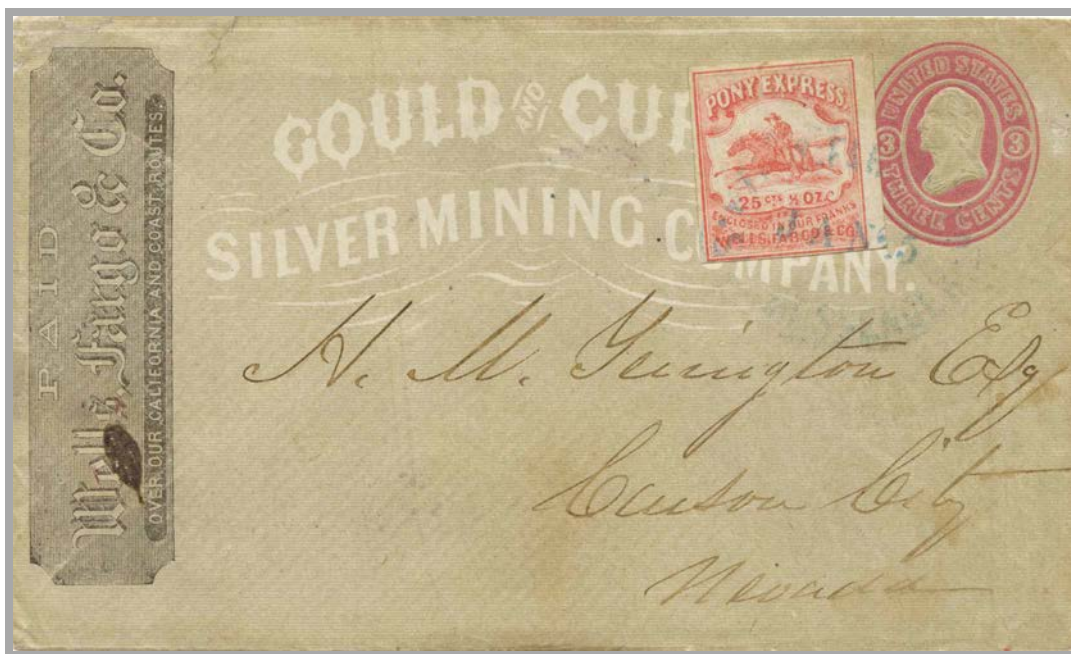 PAID
Wells, Fargo & Co.
OVER OUR CALIFORNIA AND COAST ROUTES.
GOULD AND CU
SILVER MINING COMPANY.
PONY EXPRESS.
25 CTS ½ OZ.
ENCLOSED IN OUR FRANKS
WELLS, FARGO & CO.
UNITED STATES
3 3
THREE CENTS
H. M. Yerington Esq
Carson City
Nevada